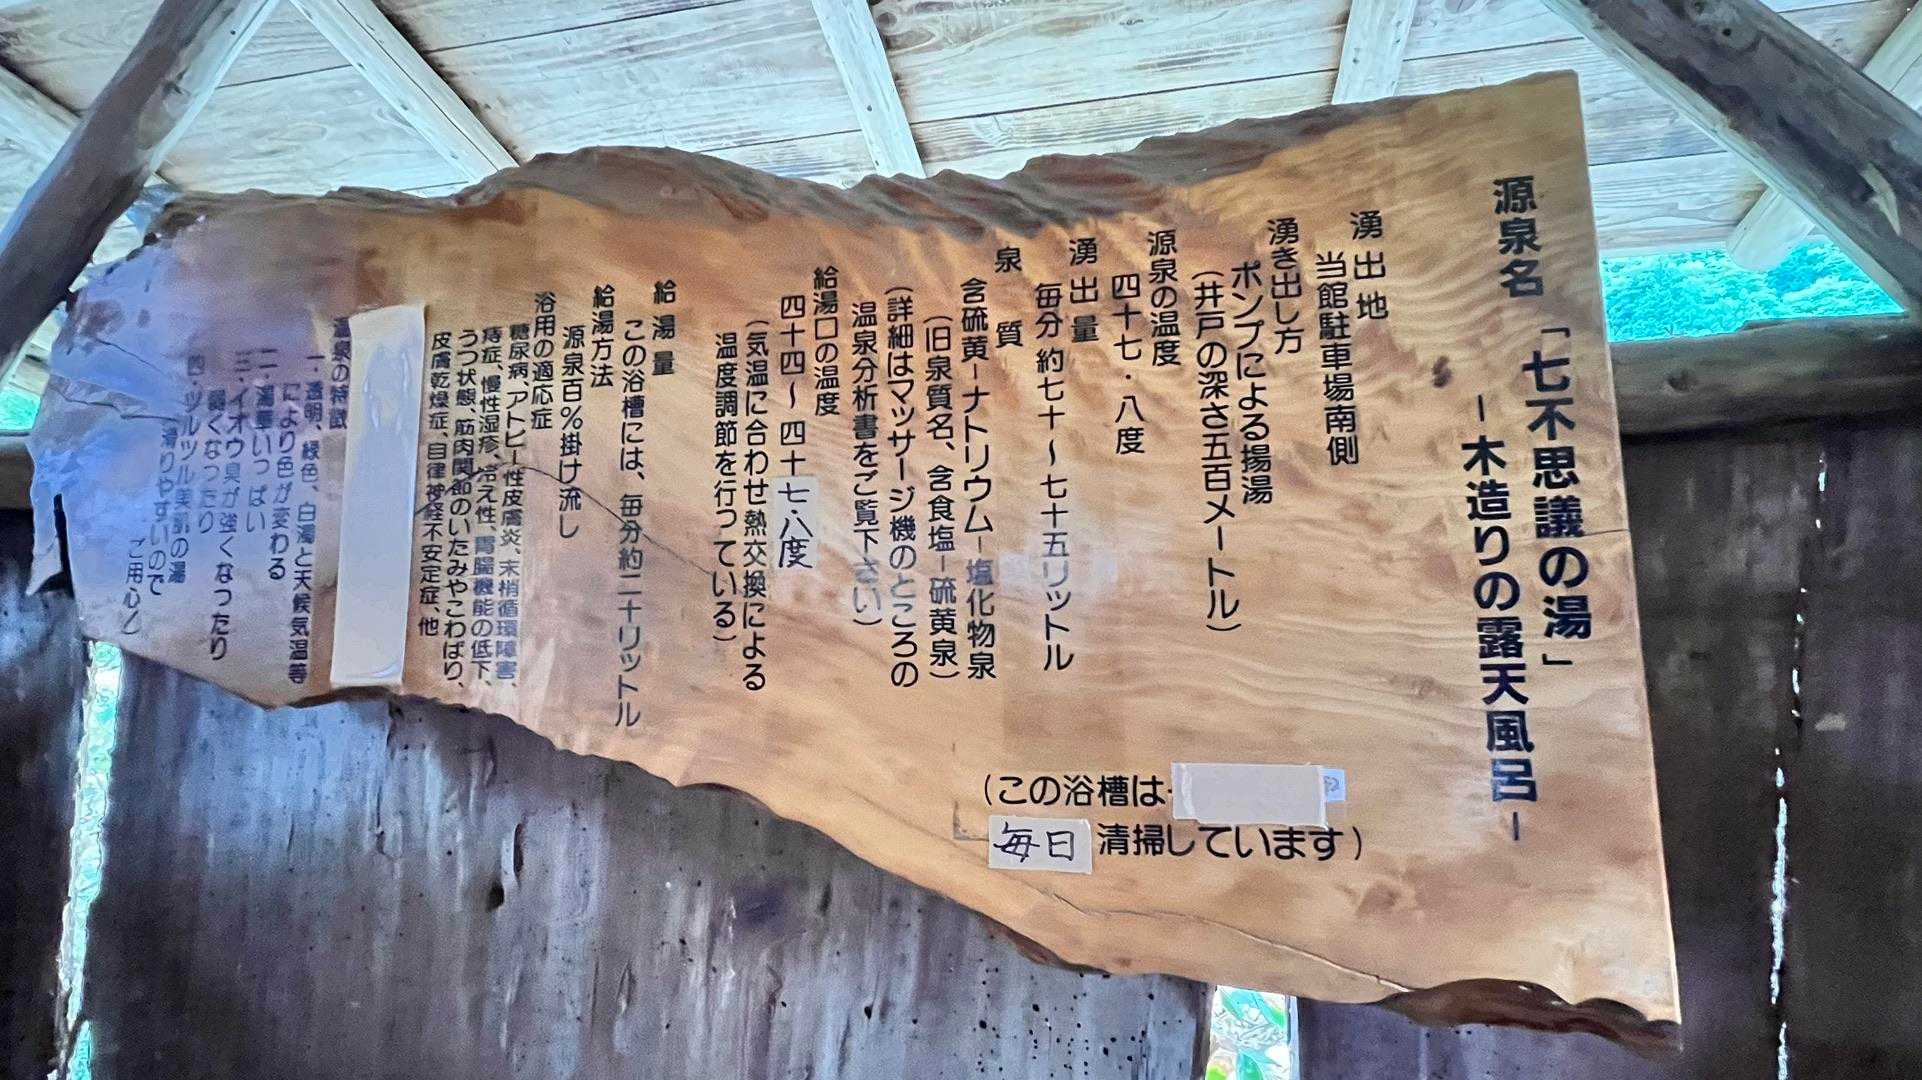 源泉名 「七不思議の湯」
－木造りの露天風呂－
湧出地
当館駐車場南側
湧き出し方
ポンプによる揚湯
（井戸の深さ五百メートル）
源泉の温度
四十七・八度
湧出量
毎分 約七十～七十五リットル
泉質
含硫黄－ナトリウム－塩化物泉
（旧泉質名、含食塩－硫黄泉）
（詳細はマッサージ機のところの
温泉分析書をご覧下さい）
給湯口の温度
四十四～四十七・八度
（気温に合わせ熱交換による
温度調節を行っている）
給湯量
この浴槽には、毎分約二十リットル
給湯方法
源泉百%掛け流し
浴用の適応症
糖尿病、アトピー性皮膚炎、末梢循環障害、
痔症、慢性湿疹、冷え性、胃腸機能の低下、
うつ状態、筋肉関節のいたみやこわばり、
皮膚乾燥症、自律神経不安定症、他
温泉の特徴
一・透明、緑色、白濁と天候気温等
により色が変わる
二・湯華いっぱい
三・イオウ臭が強くなったり
弱くなったり
四・ツルツル美肌の湯
（滑りやすいので
ご用心）
（この浴槽は
毎日 清掃しています）